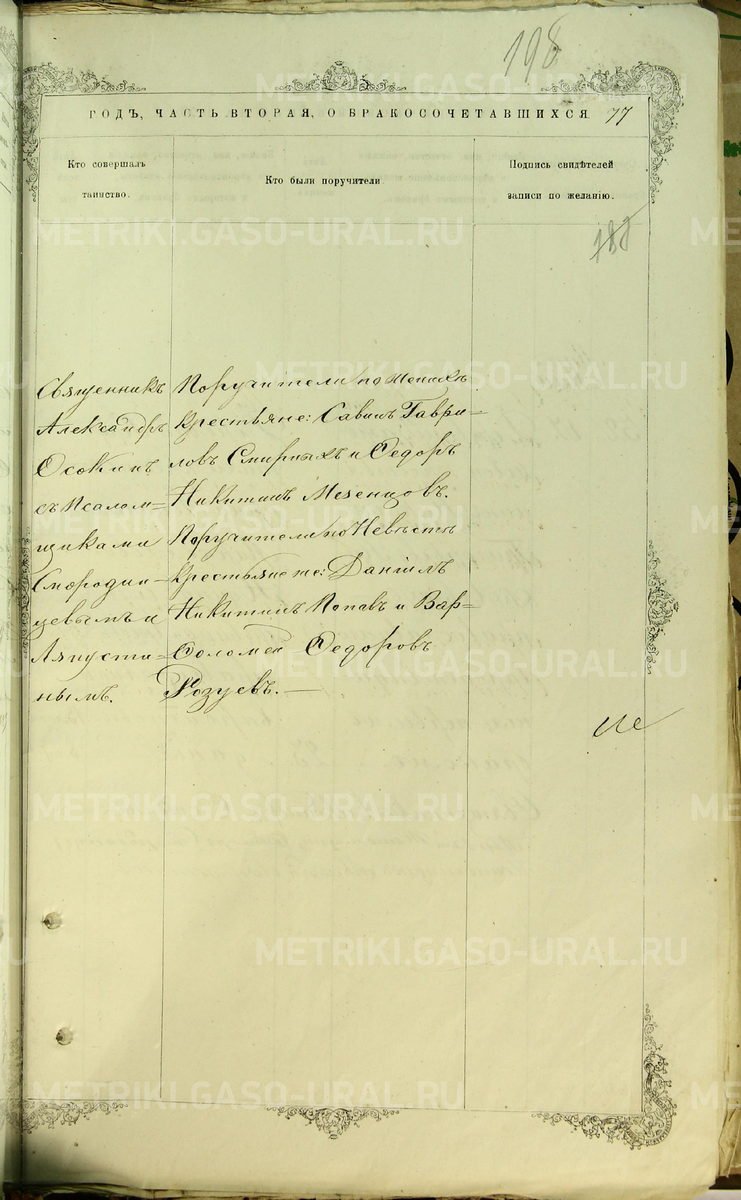 198
ГОДЪ, ЧАСТЬ ВТОРАЯ, О БРАКОСОЧЕТАВШИХСЯ 77
Кто совершалъ
таинство.
Кто были поручители
Подпись свидѣтелей
записи по желанію.
188
Священникъ
Александръ
Осокинъ
съ Псалом=
щиками
Смородин=
цевымъ и
Ляпусти=
нымъ.
Поручители по женихѣ
крестьяне: Савинъ Гаври=
ловъ и Ѳедоръ
Никитинъ Мезенцовъ.
Поручители по Невѣстѣ
Крестьяне же: Даніилъ
Никитинъ Попавъ и Вар=
ѳоломей Ѳедоровъ
Розуевъ.—
METRIKI.GASO-URAL.RU